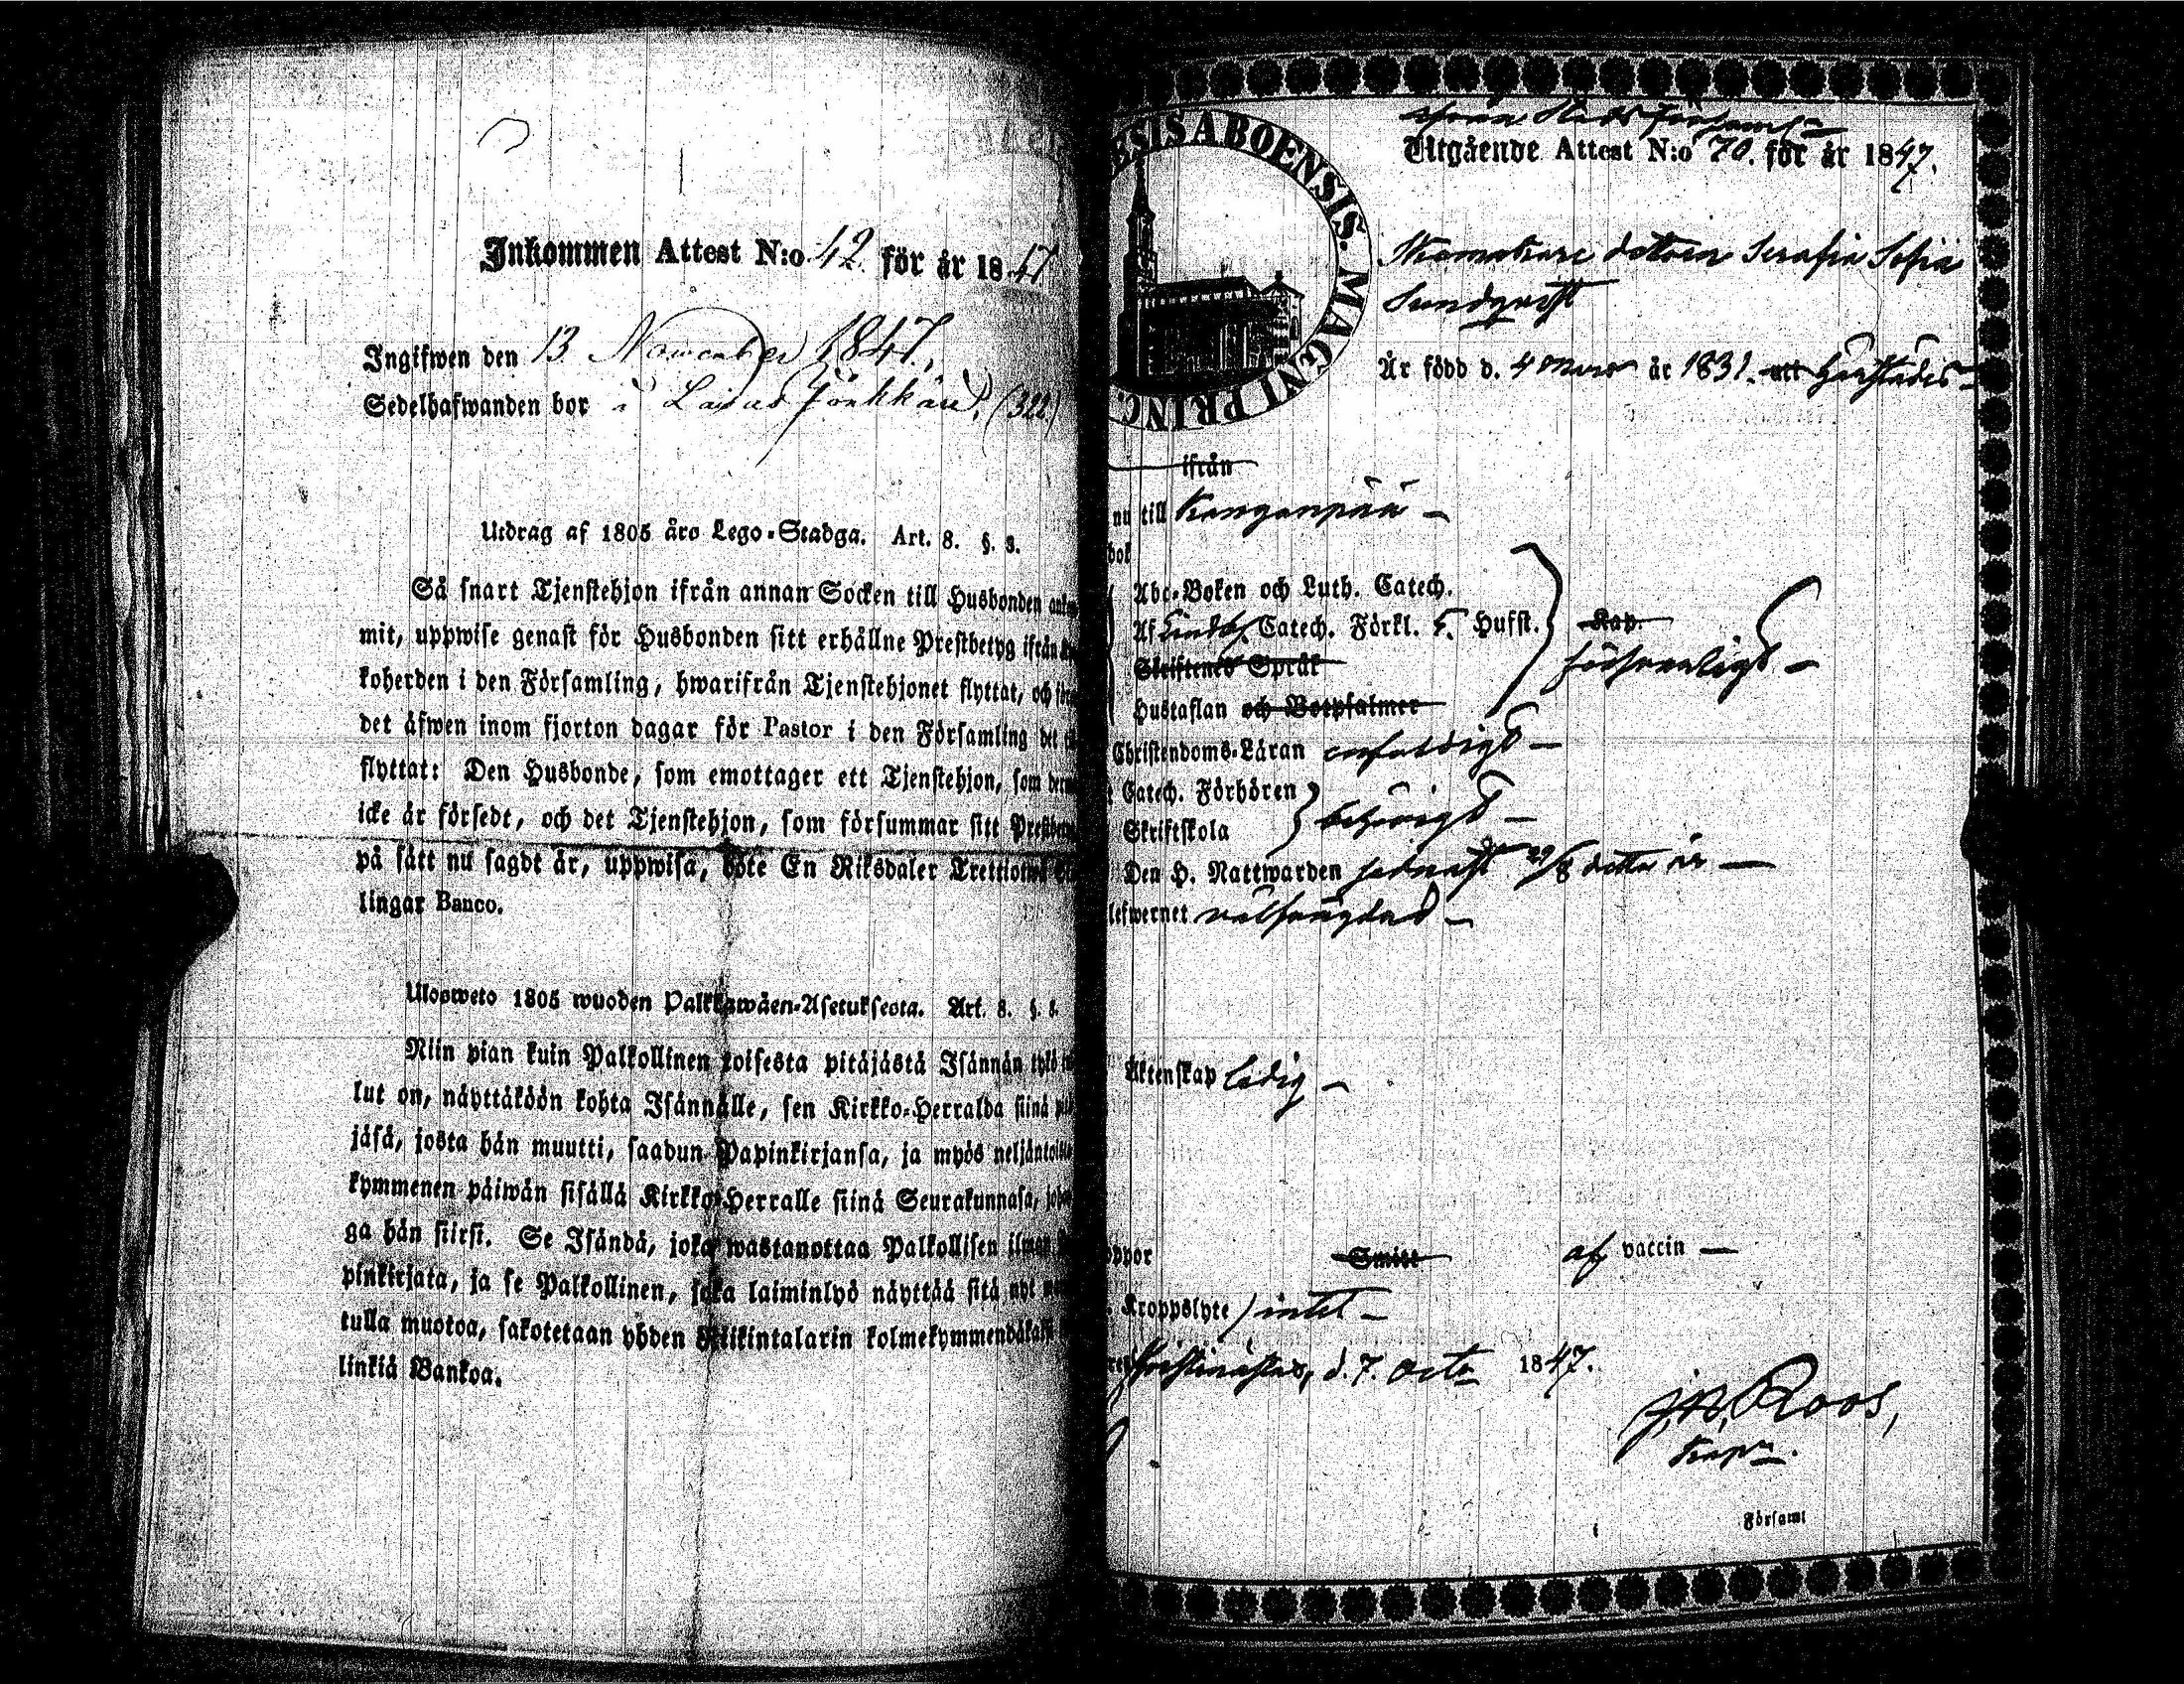 Inkommen Attest N:o 42 för år 1847.
Ingifwen den 13 November 1847.
Sedelhafwanden bor å (322.)
Utdrag af 1805 års Lego-Stadga. Art. 8. §. 3.
Så snart Tjenstehjon ifrån annan Socken till Husbonden
mit, uppwise genast för Husbonden sitt erhållne Prestbetyg ifrån
koherden i den Församling, hwarifrån Tjenstehjonet flyttat, och
det äfwen inom fjorton dagar för Pastor i den Församling det
flyttat: Den Husbonde, som emottager ett Tjenstehjon, som
icke är försedt, och det Tjenstehjon, som försummar sitt
på sätt nu sagdt är, uppwisa, böte En Riksdaler Trettiotwå
lingar Banco.
Ulosweto 1805 wuoden Palkkawäen-Asetuksesta. Art. 8. §. 3.
Niin pian kuin Palkollinen toisesta pitäjästä Isännän tykö
lut on, näyttäköön kohta Isännälle, sen Kirkko-Herralda siinä
jäsä, josta hän muutti, saadun Papinkirjansa, ja myös
kymmenen päiwän sisällä Kirkko-Herralle siinä Seurakunnasa,
ga hän siirsi. Se Isändä, joka wastanottaa Palkollisen ilman
pinkirjata, ja se Palkollinen, joka laiminlyö näyttää sitä nyt
tulla muotoa, sakotetaan yhden Riikintalarin
linkiä Bankoa.
SIS ABOENSIS. MAGNI PRINC.
Utgående Attest N:o 70. för år 1847.
Skomakare dottern Serafia Sofia
Sundqvist
Är född d. 4 Mars år 1831. att Härstädes
ifrån
nu till Kanganpää
bok
Abc-Boken och Luth. Catech.
Af Catech. Förkl. Hufst. Kap.
Skriftenes Språk försvarligt
Hustaflan och Botpsalmer
Christendoms-Läran enfaldigt
Catech. Förhören
Skriftskola behörigt
Den H. Nattwarden sednast 29/8 detta år
lefwernet välfrägdad
Äktenskap ledig
ppor Smitt af vaccin
Kroppslyte intet
Christinæstad, d. 7. Octo 1847.
Roos,
Kapn.
Församl